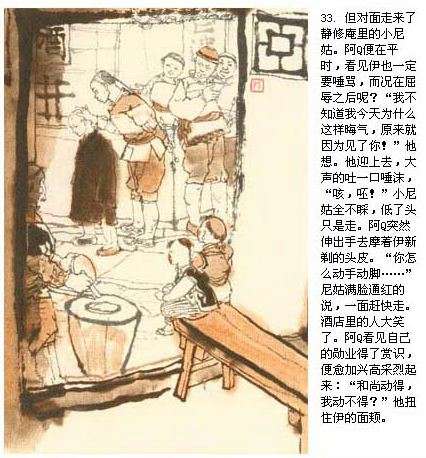 33. 但对面走来了
静修庵里的小尼
姑。阿Q便在平
时，看见伊也一定
要唾骂，而况在屈
辱之后呢？“我不
知道我今天为什么
这样晦气，原来就
因为见了你！”他
想。他迎上去，大
声的吐一口唾沫，
“咳，呸！”小尼
姑全不睬，低了头
只是走。阿Q突然
伸出手去摩着伊新
剃的头皮。“你怎
么动手动脚……”
尼姑满脸通红的
说，一面赶快走。
酒店里的人大笑
了。阿Q看见自己
的勋业得了赏识，
便愈加兴高采烈起
来：“和尚动得，
我动不得？”他扭
住伊的面颊。
酒